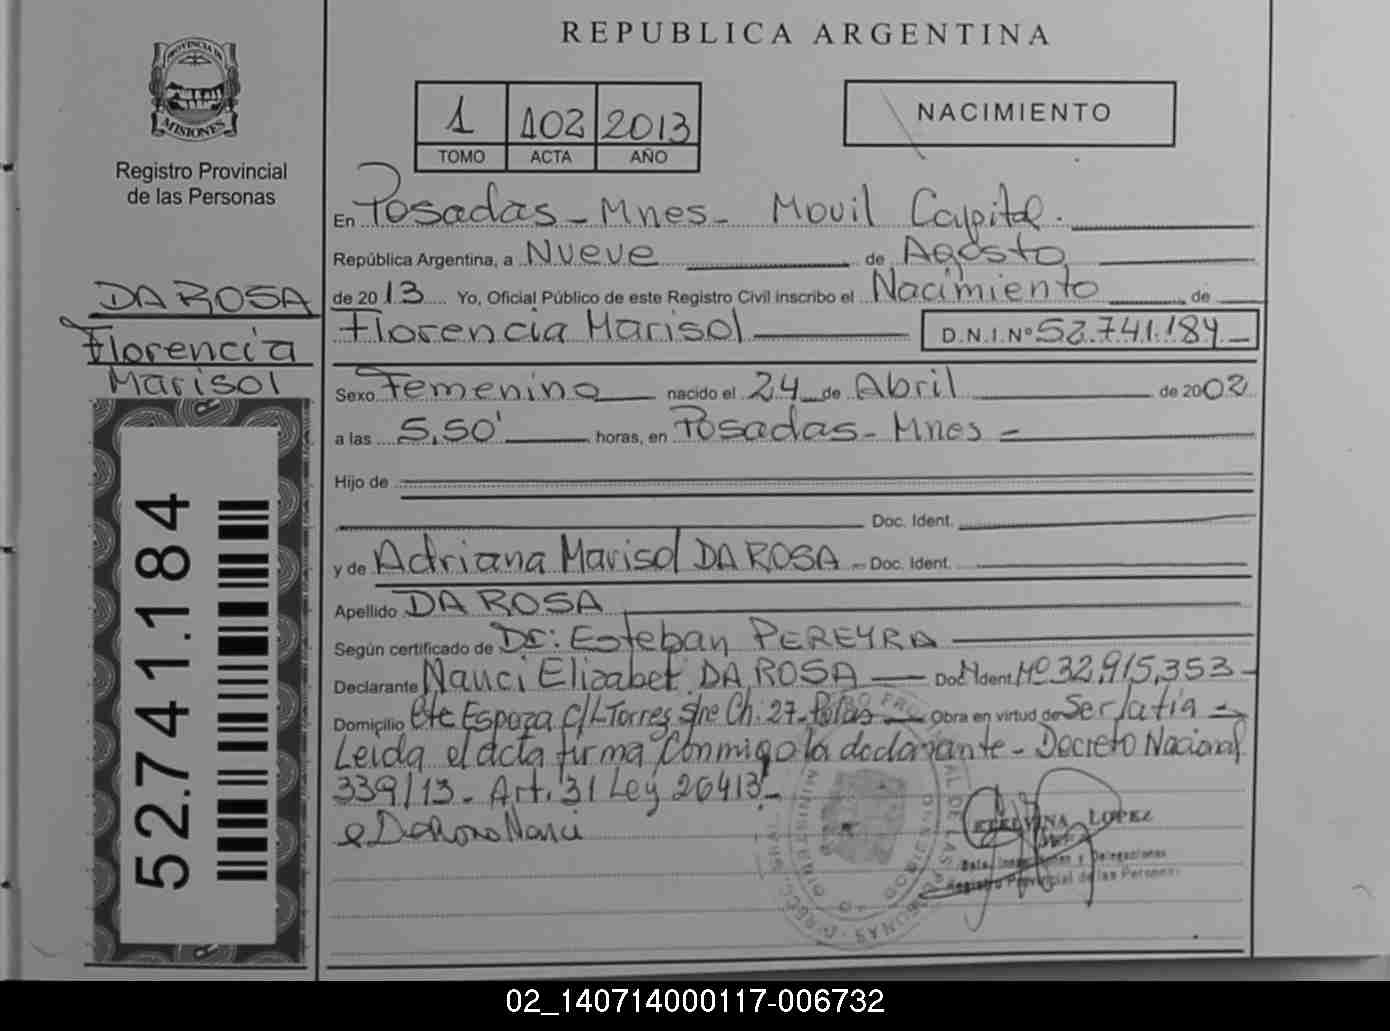 REPUBLICA ARGENTINA
PROVINCIA DE
MISIONES
Registro Provincial
de las Personas
1 102 2013
TOMO ACTA AÑO
NACIMIENTO
En Posadas - Mnes - Movil Capital.
República Argentina, a Nueve de Agosto
de 2013 Yo, Oficial Público de este Registro Civil inscribo el Nacimiento de
Florencia Marisol D.N.I.Nº 52.741.184
DA ROSA
Florencia
Marisol
Sexo Femenino nacido el 24 de Abril de 2002
a las 5,50' horas, en Posadas - Mnes -
Hijo de
Doc. Ident.
y de Adriana Marisol DA ROSA - Doc. Ident.
Apellido DA ROSA
Según certificado de Dr: Esteban PEREYRA
Declarante Nanci Elizabet DA ROSA Doc. Ident. Nº 32,915,353 -
Domicilio Cte Espora C/L Torres Ch. 27 - Obra en virtud de ser
Leida el acta firma conmigo la declarante - Decreto Nacional
339/13 - Art. 31 Ley 26413 -
Da Rosa Nanci
LOPEZ
Registro Provincial de las Personas
52.741.184
02_140714000117-006732